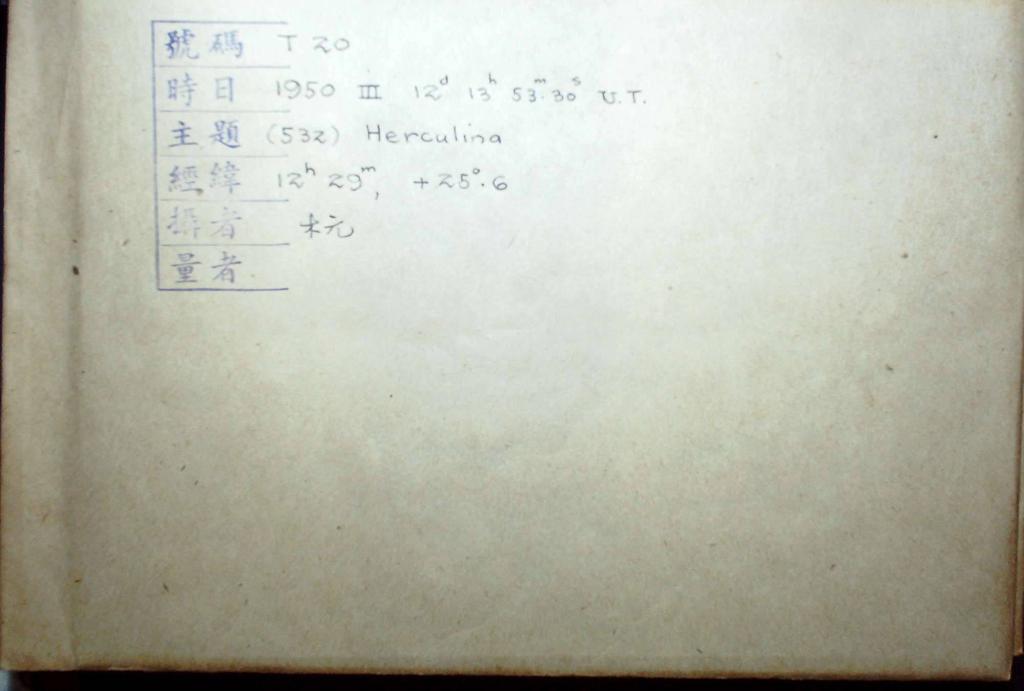 號碼 T 20
時日 1950 III 12ᵈ 13ʰ 53ᵐ.30ˢ U.T.
主題 (532) Herculina
經緯 12ʰ 29ᵐ, +25°.6
攝者 元
量者